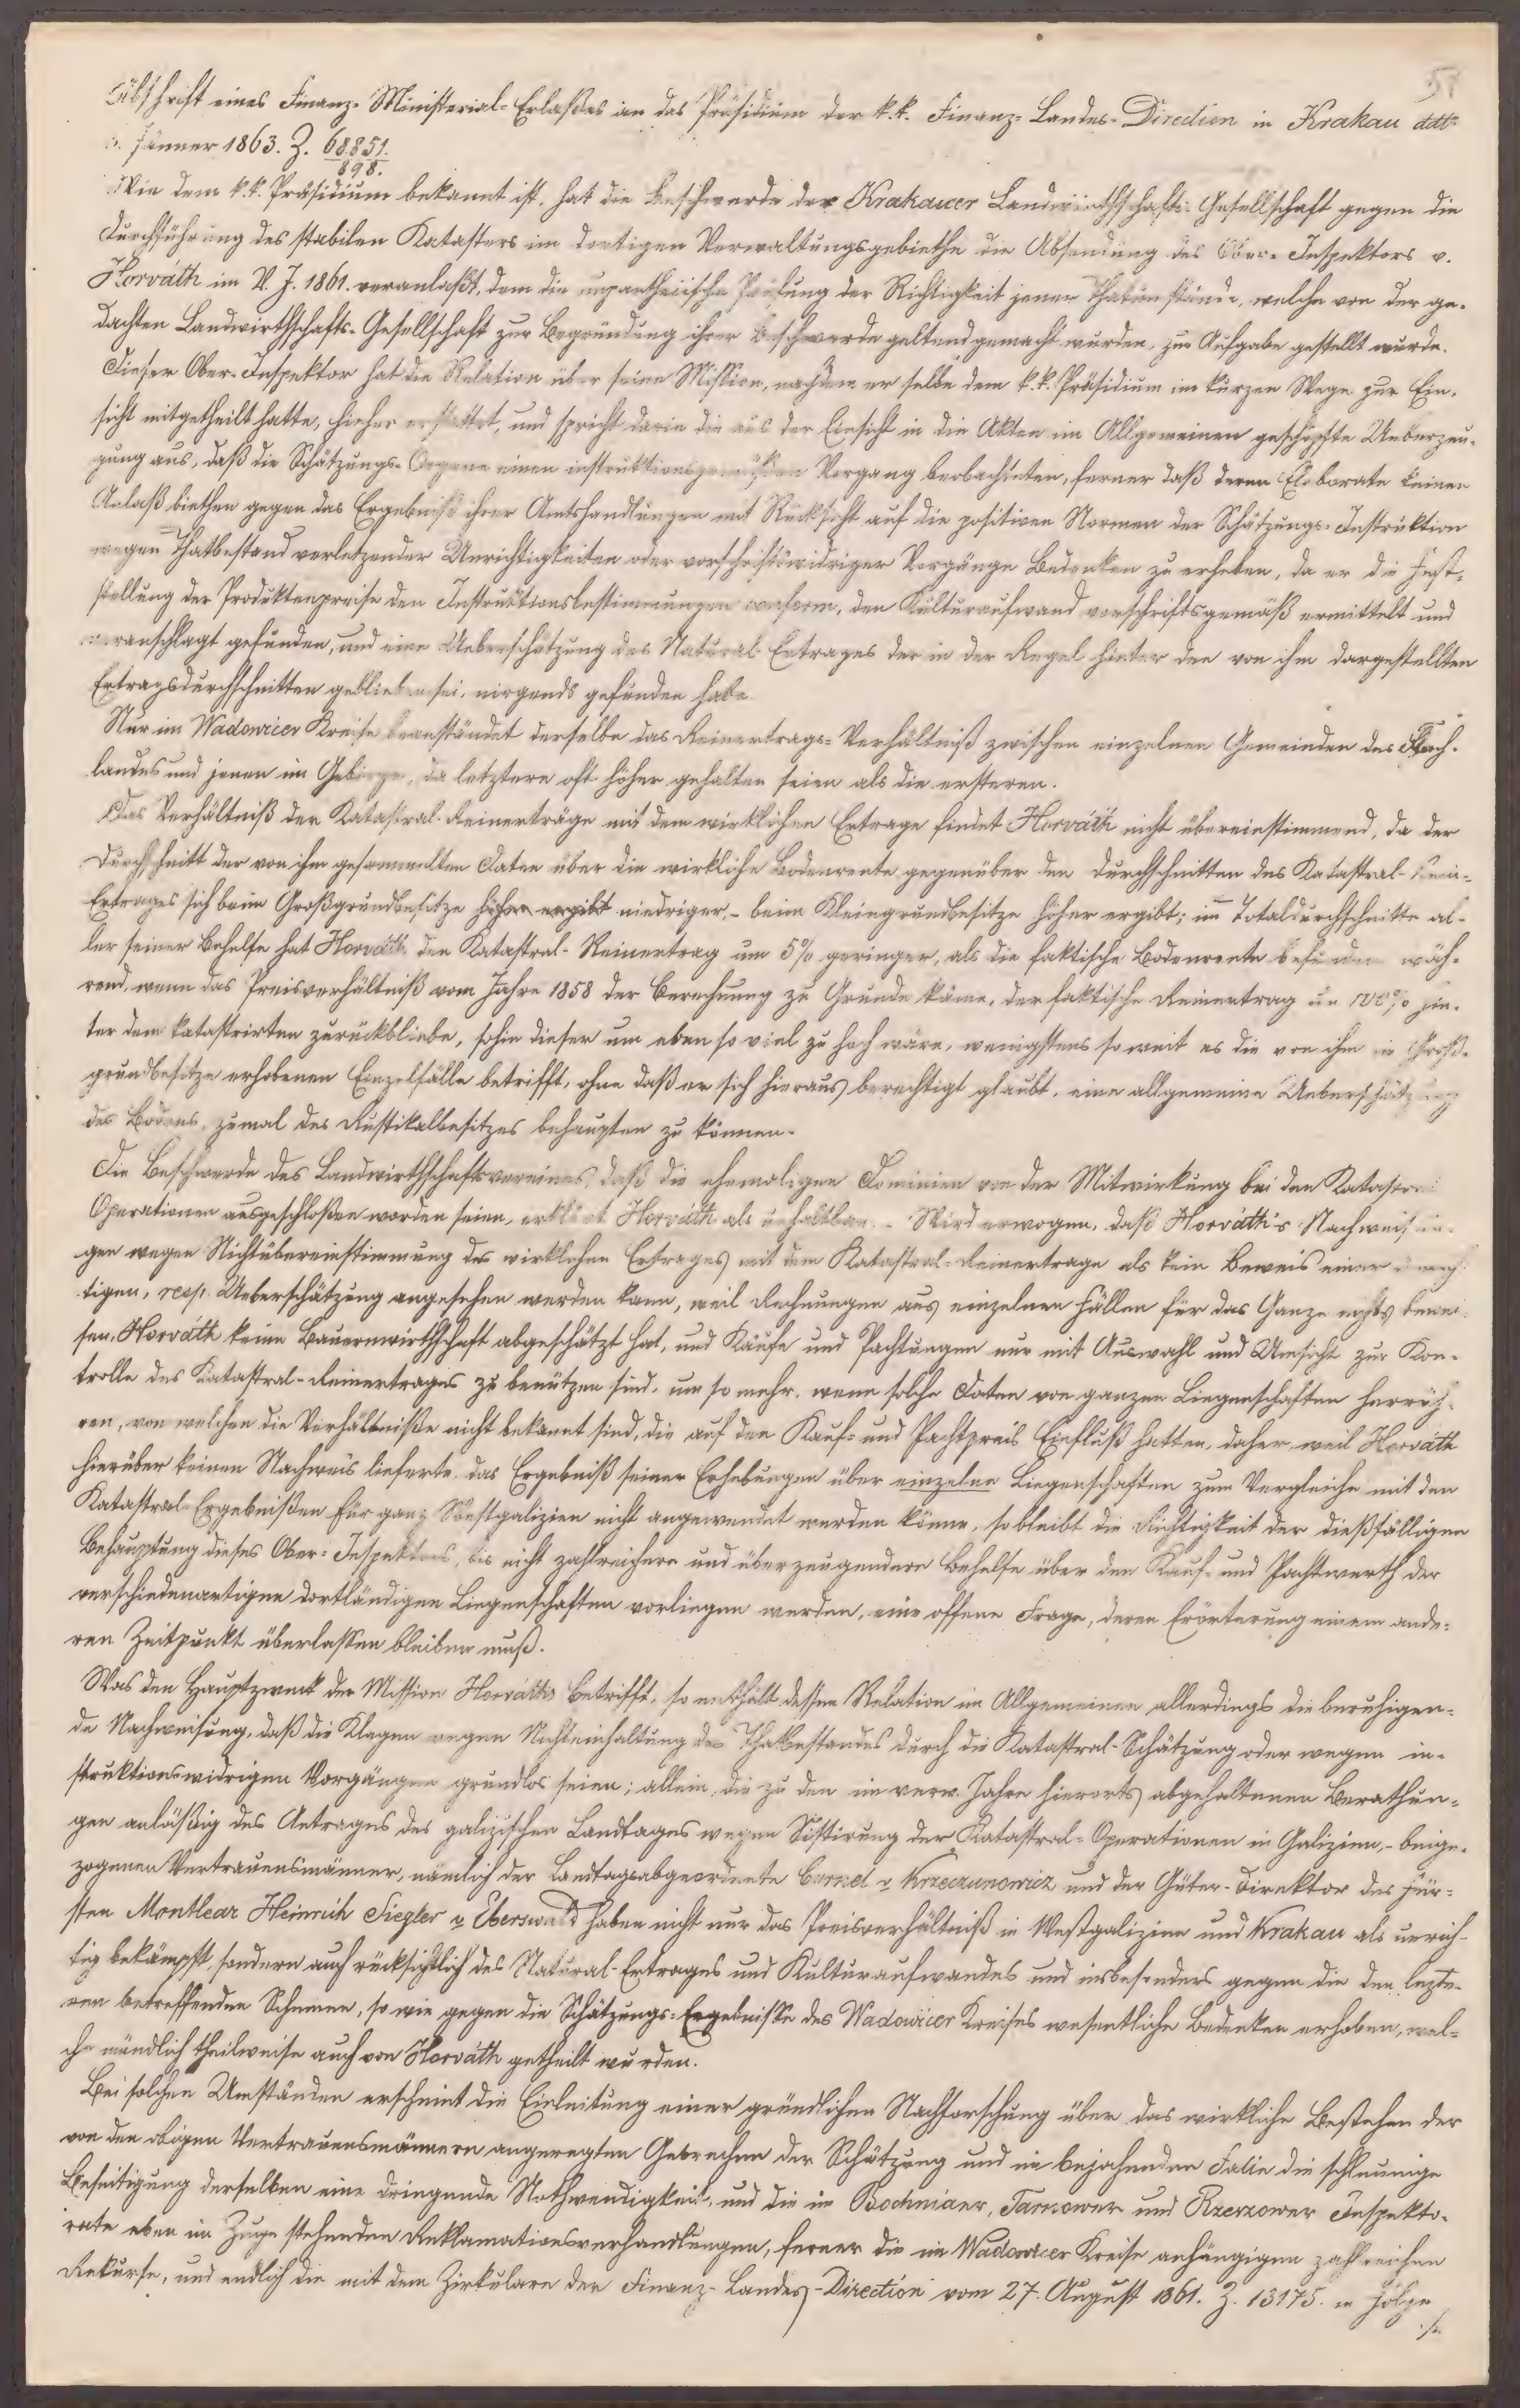 Abschrift eines Finanz-Ministerial-Erlaßes an das Präsidium der k.k. Finanz-Landes-Direction in Krakau ddto
Jänner 1863. Z. 68851./898.
Wie dem k.k. Präsidium bekannt ist, hat die Beschwerde der Krakauer Landwirthschafts-Gesellschaft gegen die
Durchführung des stabilen Katasters im dortigen Verwaltungsgebiethe die Absendung des Ober-Inspektors v.
Horváth im V. J. 1861. veranlaßt, dem die unpartheiische Prüfung der Richtigkeit jener Thatumstände, welche von der ge-
dachten Landwirthschafts-Gesellschaft zur Begründung ihrer Beschwerde geltend gemacht wurden, zur Aufgabe gestellt wurde.
Dieser Ober-Inspektor hat die Relation über seine Mission, nachdem er selbe dem k.k. Präsidium im kurzen Wege zur Ein-
sicht mitgetheilt hatte, hieher erstattet, und spricht darin die aus der Einsicht in die Akten im Allgemeinen geschöpfte Ueberzeu-
gung aus, daß die Schätzungs-Organe einen instruktionsgemäßen Vorgang beobachteten, ferner daß deren Elaborate keinen
Anlaß biethen gegen das Ergebniß ihrer Amtshandlungen mit Rücksicht auf die positiven Normen der Schätzungs-Instruktion
wegen Thatbestand verletzender Unrichtigkeiten oder vorschriftswidriger Vorgänge Bedenken zu erheben, da er die Fest-
stellung der Produktenpreise den Instruktionsbestimmungen conform, den Kulturaufwand vorschriftsgemäß ermittelt und
veranschlagt gefunden, und eine Ueberschätzung des Natural-Ertrages der in der Regel hinter den von ihm dargestellten
Ertragsdurchschnitten geblieben sei, nirgends gefunden habe.
Nur im Wadowicer Kreise beanständet derselbe das Reinertrags-Verhältniß zwischen einzelnen Gemeinden des Flach-
landes und jenen im Gebirge, da letztere oft höher gehalten seien als die ersteren.
Das Verhältniß der Katastral-Reinerträge mit dem wirklichen Ertrage findet Horváth nicht übereinstimmend, da der
Durchschnitt der von ihm gesammelten Daten über die wirkliche Bodenrente gegenüber den Durchschnitten des Katastral-Rein-
Ertrages sich beim Großgrundbesitze höher ergibt niedriger, - beim Kleingrundbesitze höher ergibt; im Totaldurchschnitte al-
ler seiner Behelfe hat Horváth den Katastral-Reinertrag um 5% geringer, als die faktische Bodenrente befunden wäh-
rend, wenn das Preisverhältniß vom Jahre 1858 der Berechnung zu Grunde käme, der faktische Reinertrag um 100% hin-
ter dem katastrirten zurückbliebe, sohin dieser um eben so viel zu hoch wäre, wenigstens so weit es die von ihm im Groß-
grundbesitze erhobenen Einzelfälle betrifft, ohne daß er sich hieraus berechtigt glaubt, eine allgemeine Ueberschätzung
des Bodens, zumal des Rustikalbesitzes behaupten zu können.
Die Beschwerde des Landwirthschaftsvereines, daß die ehemaligen Dominien von der Mitwirkung bei den Katastral
Operationen ausgeschloßen worden seien, erklärt Horváth als unhaltbar. - Wird erwogen, daß Horváth's Nachweisun-
gen wegen Nichtübereinstimmung des wirklichen Ertrages mit dem Katastral-Reinertrage als kein Beweis einer unrich-
tigen, resp. Ueberschätzung angesehen werden kann, weil Rechnungen aus einzelnen Fällen für das Ganze nichts bewei-
sen, Horváth keine Bauernwirthschaft abgeschätzt hat, und Käufe und Pachtungen nur mit Auswahl und Umsicht zur Kon-
trolle des Katastral-Reinertrages zu benützen sind, um so mehr, wenn solche Daten von ganzen Liegenschaften herrüh-
ren, von welchen die Verhältniße nicht bekannt sind, die auf den Kauf- und Pachtpreis Einfluß hatten, daher, weil Horváth
hierüber keinen Nachweis lieferte, das Ergebniß seiner Erhebungen über einzelne Liegenschaften zum Vergleiche mit den
Katastral-Ergebnißen für ganz Westgalizien nicht angewendet werden könne, so bleibt die Richtigkeit der dießfälligen
Behauptung dieses Ober-Inspektors, bis nicht zahlreichere und überzeugendere Behelfe über den Kauf- und Pachtwerth der
verschiedenartigen dortländigen Liegenschaften vorliegen werden, eine offene Frage, deren Erörterung einem ande-
ren Zeitpunkt überlassen bleiben muß.
Was den Hauptzweck der Mission Horváths betrifft, so enthält dessen Relation im Allgemeinen allerdings die beruhigen-
de Nachweisung, daß die Klagen wegen Nichteinhaltung des Thatbestandes durch die Katastral-Schätzung oder wegen in-
struktionswidrigen Vorgängen grundlos seien; allein, die zu den im verw. Jahre hierorts abgehaltenen Berathun-
gen anläßig des Antrages des galizischen Landtages wegen Sistirung der Katastral-Operationen in Galizien, - beige-
zogenen Vertrauensmänner, nämlich der Landtagsabgeordnete Cornel v Krzeczunowicz und der Güter-Direktor des Für-
sten Montlear Heinrich Siegler v Eberswald haben nicht nur das Preisverhältniß in Westgalizien und Krakau als unrich-
tig bekämpft, sondern auch rücksichtlich des Natural-Ertrages und Kulturaufwandes und insbesonders gegen die den lezte-
ren betreffenden Schemen, so wie gegen die Schätzungs-Ergebnisse des Wadowicer Kreises wesentliche Bedenken erhoben, wel-
che mündlich theilweise auch von Horváth getheilt wurden.
Bei solchen Umständen erscheint die Einleitung einer gründlichen Nachforschung über das wirkliche Bestehen der
von den obigen Vertrauensmännern angeregten Gebrechen der Schätzung und im bejahenden Falle die schleunige
Beseitigung derselben eine dringende Nothwendigkeit, und die im Bochniaer, Tarnower und Rzeszower Inspekto-
rate eben im Zuge stehenden Reklamationsverhandlungen, ferner die im Wadowicer Kreise anhängigen zahlreichen
Rekurse, und endlich die mit dem Zirkulare der Finanz-Landes-Direction vom 27. August 1861. Z. 13175. in Folge
./.